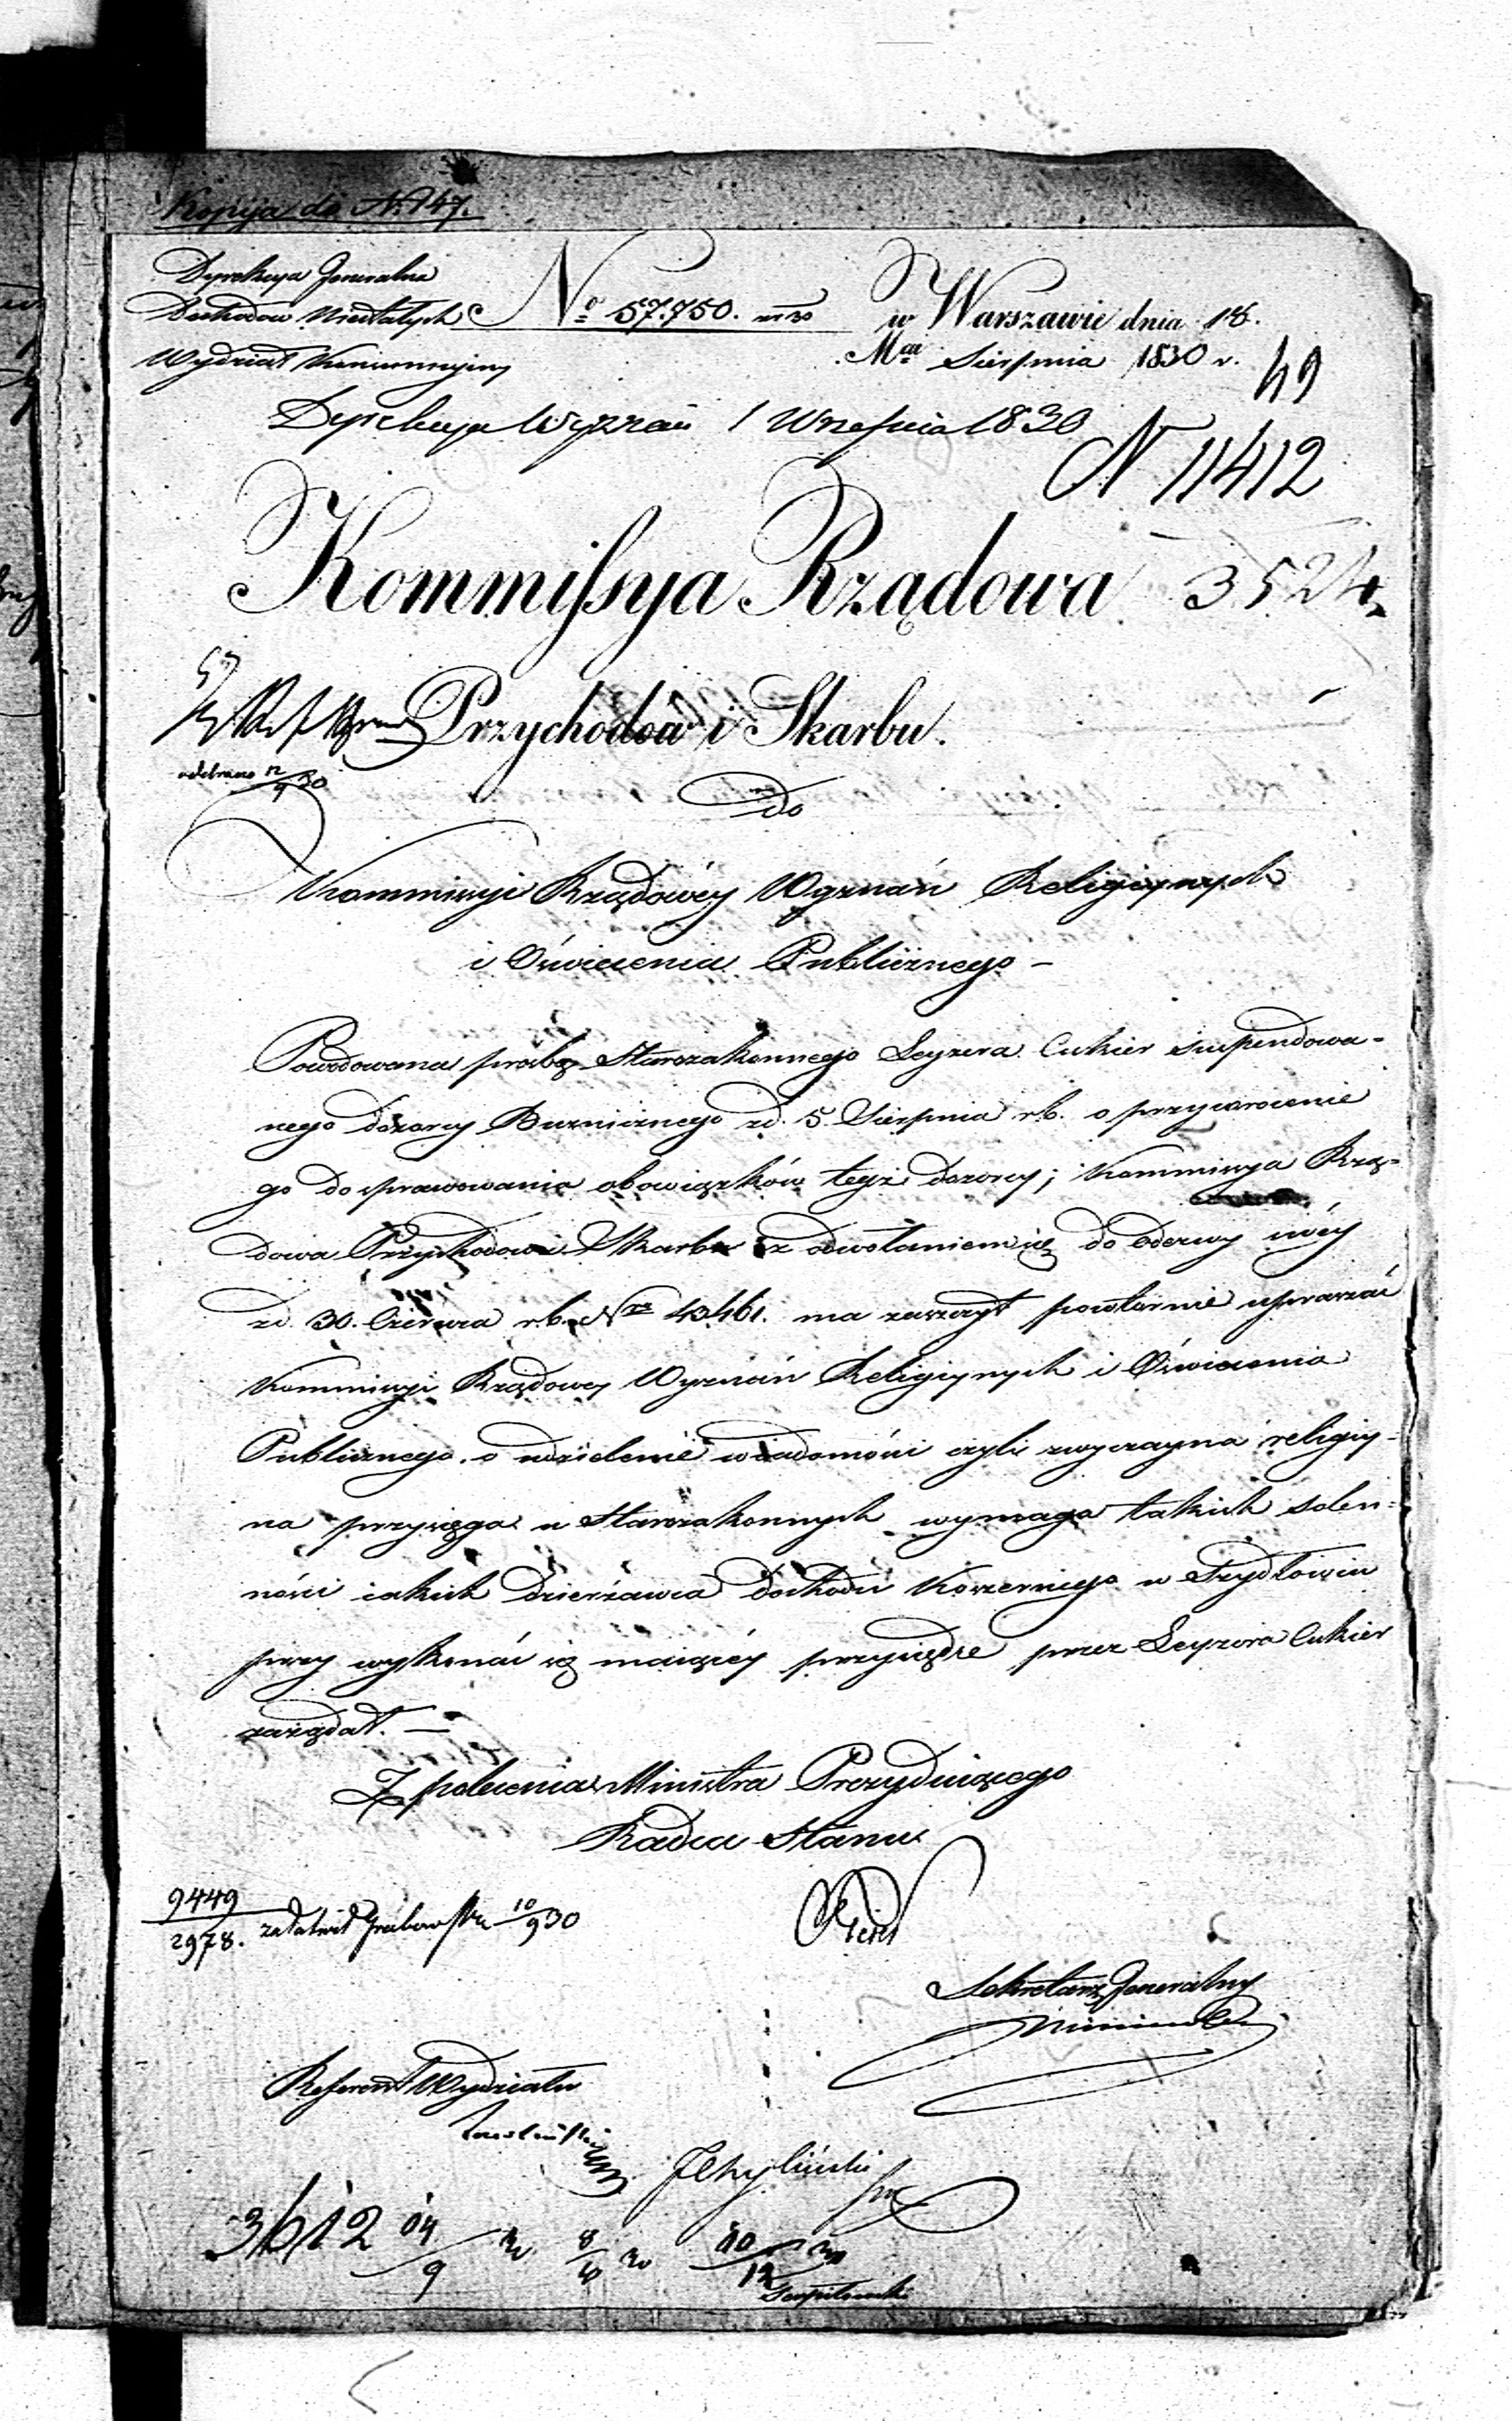 Kopija do N. 147.
Dyrekcya Jeneralna
Dochodów Niestałych
Wydział Konsumcyiny
No 57.750.
w Warszawie dnia 18.
Mca Sierpnia 1830 r.
49
Dyrekcya Wyznań 1 Września 1830
N 11412
Kommissya Rządowa
3524
Przychodów i Skarbu.
odebrano 12/9 30
do
Kommissyi Rządowéy Wyznań Religiynych
i Oświecenia Publicznego –
Powodowana prośbą Starozakonnego Leyzera Cukier suspendowa=
nego dozorcy Bużnicznego zd. 5 Sierpnia r.b. o przywrócenie
go do sprawowania obowiązków tegż dozorcy; Kommissya Rzą=
dowa Przychodów i Skarbu z odwołaniem się do odezwy swéy
zd. 30. Czerwca r.b. Nro 43461. ma zaszczyt powtórnie upraszać
Kommissyi Rządowey Wyznań Religiynych i Oświecenia
Publicznego o udzielenie wiadomości czyli zwyczayna religiy=
na przysięga u Starozakonnych wymaga takich solen=
ności iakich dzierżawca dochodu Koszernego w Szydłowcu
przy wykonać się maiącéy przysiędze przez Leyzora Cukier
zażądał. —
Z polecenia Ministra Prezyduiącego
Radca Stanu
9449
2978. załatwił Grabowski 10/9 30
Sekretarz Jeneralny
Referent Wydziału
3612 04/9 30 8/10 30 10/12 30